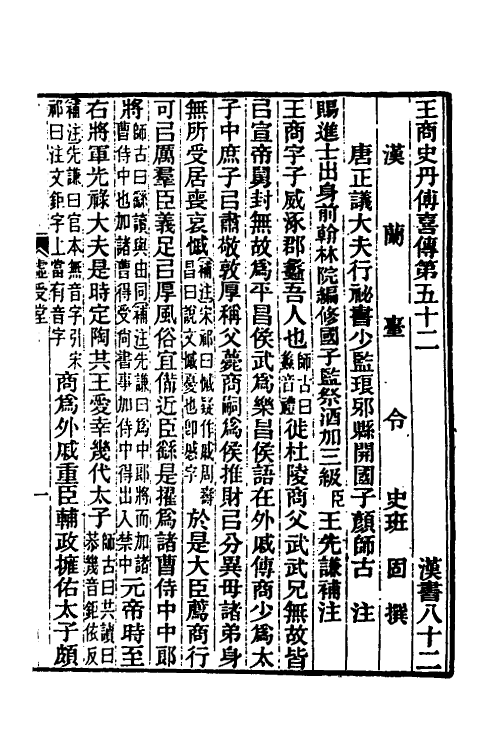 王商史丹傅喜傳第五十二　漢書八十二
漢蘭臺令史班固撰
唐正議大夫行祕書少監琅邪縣開國子顏師古注
賜進士出身前翰林院編修國子監祭酒加三級臣王先謙補注
王商字子威涿郡蠡吾人也師古曰蠡音禮徙杜陵商父武武兄無故皆
㠯宣帝舅封無故爲平昌侯武爲樂昌侯語在外戚傳商少爲太
子中庶子㠯肅敬敦厚稱父薨商嗣爲侯推財㠯分異母諸弟身
無所受居喪哀慽補注宋祁曰慽疑作戚周壽昌曰說文慽憂也卽慼字於是大臣薦商行
可㠯厲羣臣義足㠯厚風俗宜備近臣繇是擢爲諸曹侍中中郎
將師古曰繇讀與由同補注先謙曰爲中郎將而加諸曹侍中也加諸曹得受尙書事加侍中得出入禁中元帝時至
右將軍光祿大夫是時定陶共王愛幸幾代太子師古曰共讀曰恭幾音鉅依反
補注先謙曰官本無音字引宋祁曰注文鉅字上當有音字商爲外戚重臣輔政擁佑太子頗
虛受堂
一